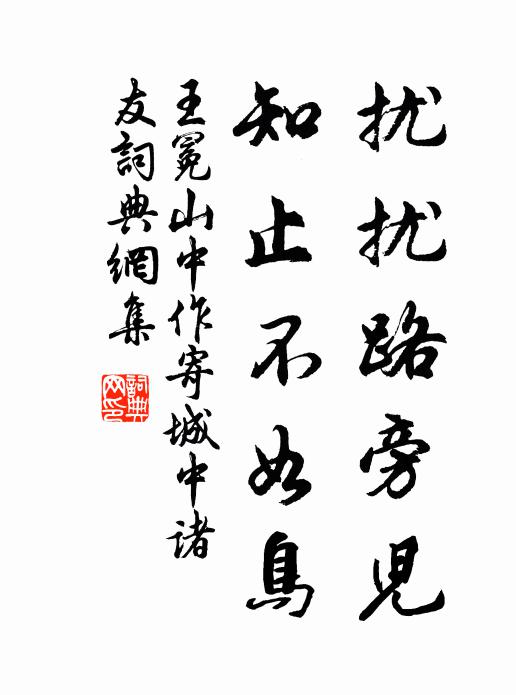 扰扰路旁児
知止不如鳥
王冕山中作寄城中诸
友詞典網集
詞典网印